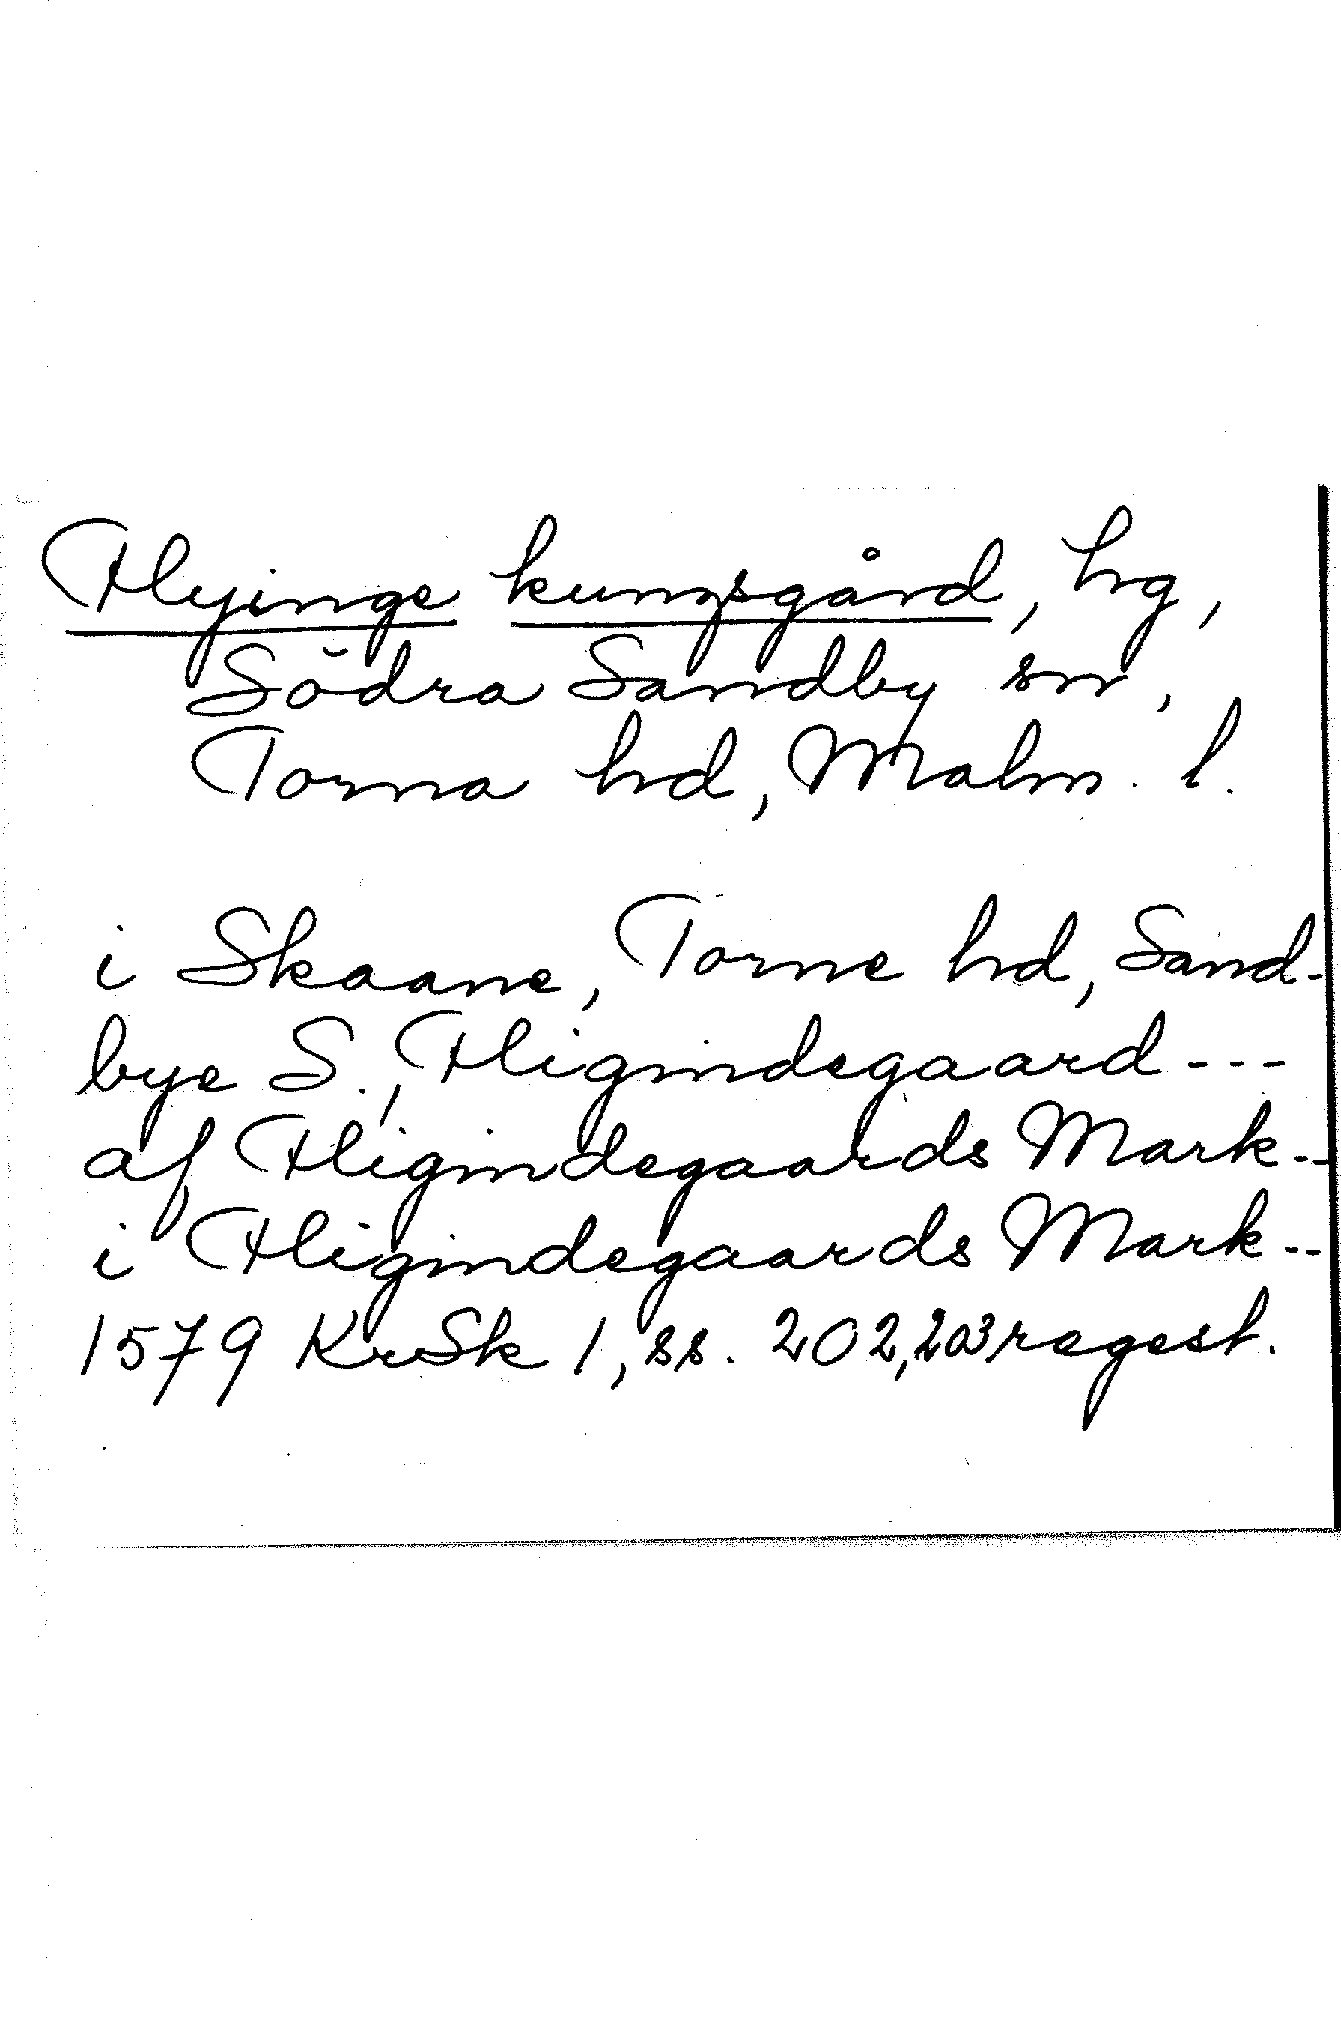 Flyinge kungsgård, hg,
Södra Sandby sn,
Torna hd, Malm. l.
i Skaane, Torne hd, Sand-
bye S., Fligindegaard ---
af Fligindegaards Mark --
i Fligindegaards Mark --
1579 KrSk 1, ss. 202,203 regest.